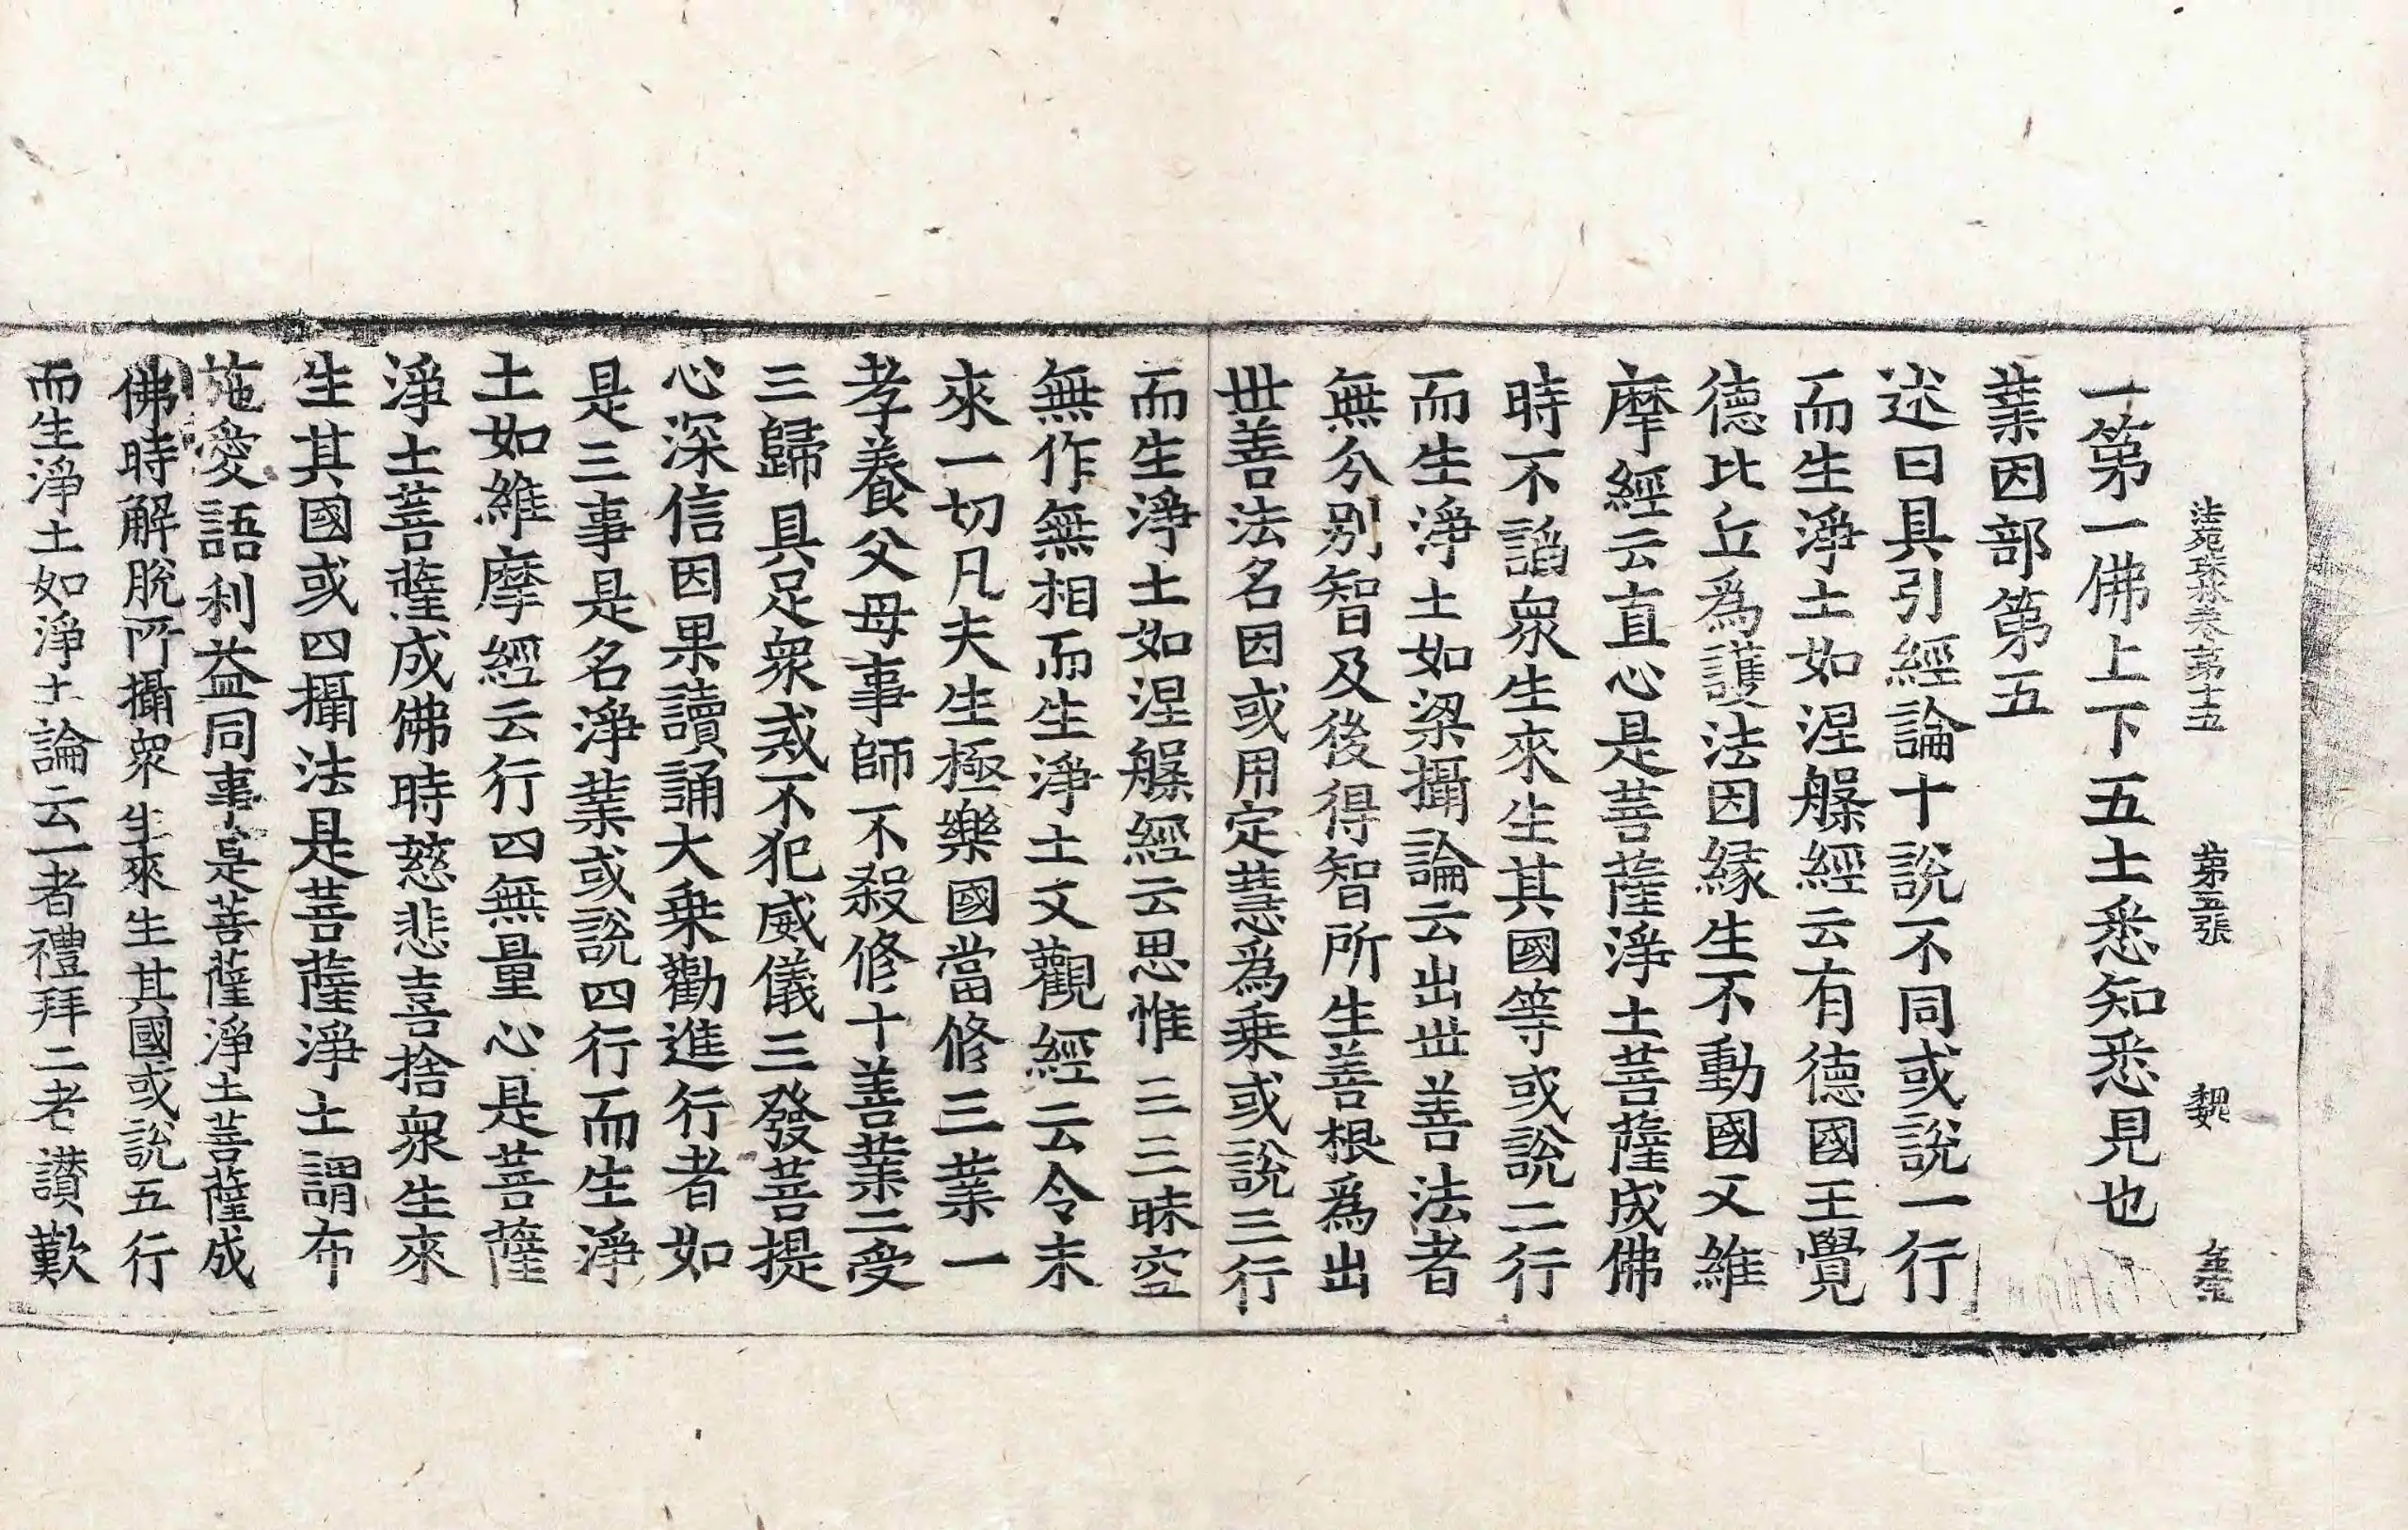 法苑珠林卷第十五 第五張 魏
一第一佛上下五土悉知悉見也
業因部第五
述曰具引經論十說不同或說一行
而生淨土如涅槃經云有德國王覺
德比丘爲護法因緣生不動國又維
摩經云直心是菩薩淨土菩薩成佛
時不諂衆生來生其國等或說二行
而生淨土如梁攝論云出世善法者
無分別智及後得智所生善根爲出
世善法名因或用定慧爲乗或說三行
而生淨土如涅槃經云思惟三三昧空
無作無相而生淨土文觀經云令未
來一切凡夫生極樂國當修三業一
孝養父母事師不殺修十善業二受
三歸具足衆戒不犯威儀三發菩提
心深信因果讀誦大乗勸進行者如
是三事是名淨業或說四行而生淨
土如維摩經云行四無量心是菩薩
淨土菩薩成佛時慈悲喜捨衆生來
生其國或四攝法是菩薩淨土謂布
施愛語利益同事是菩薩淨土菩薩成
佛時解脫所攝衆生來生其國或說五行
而生淨土如淨土論云一者禮拜二者讃歎